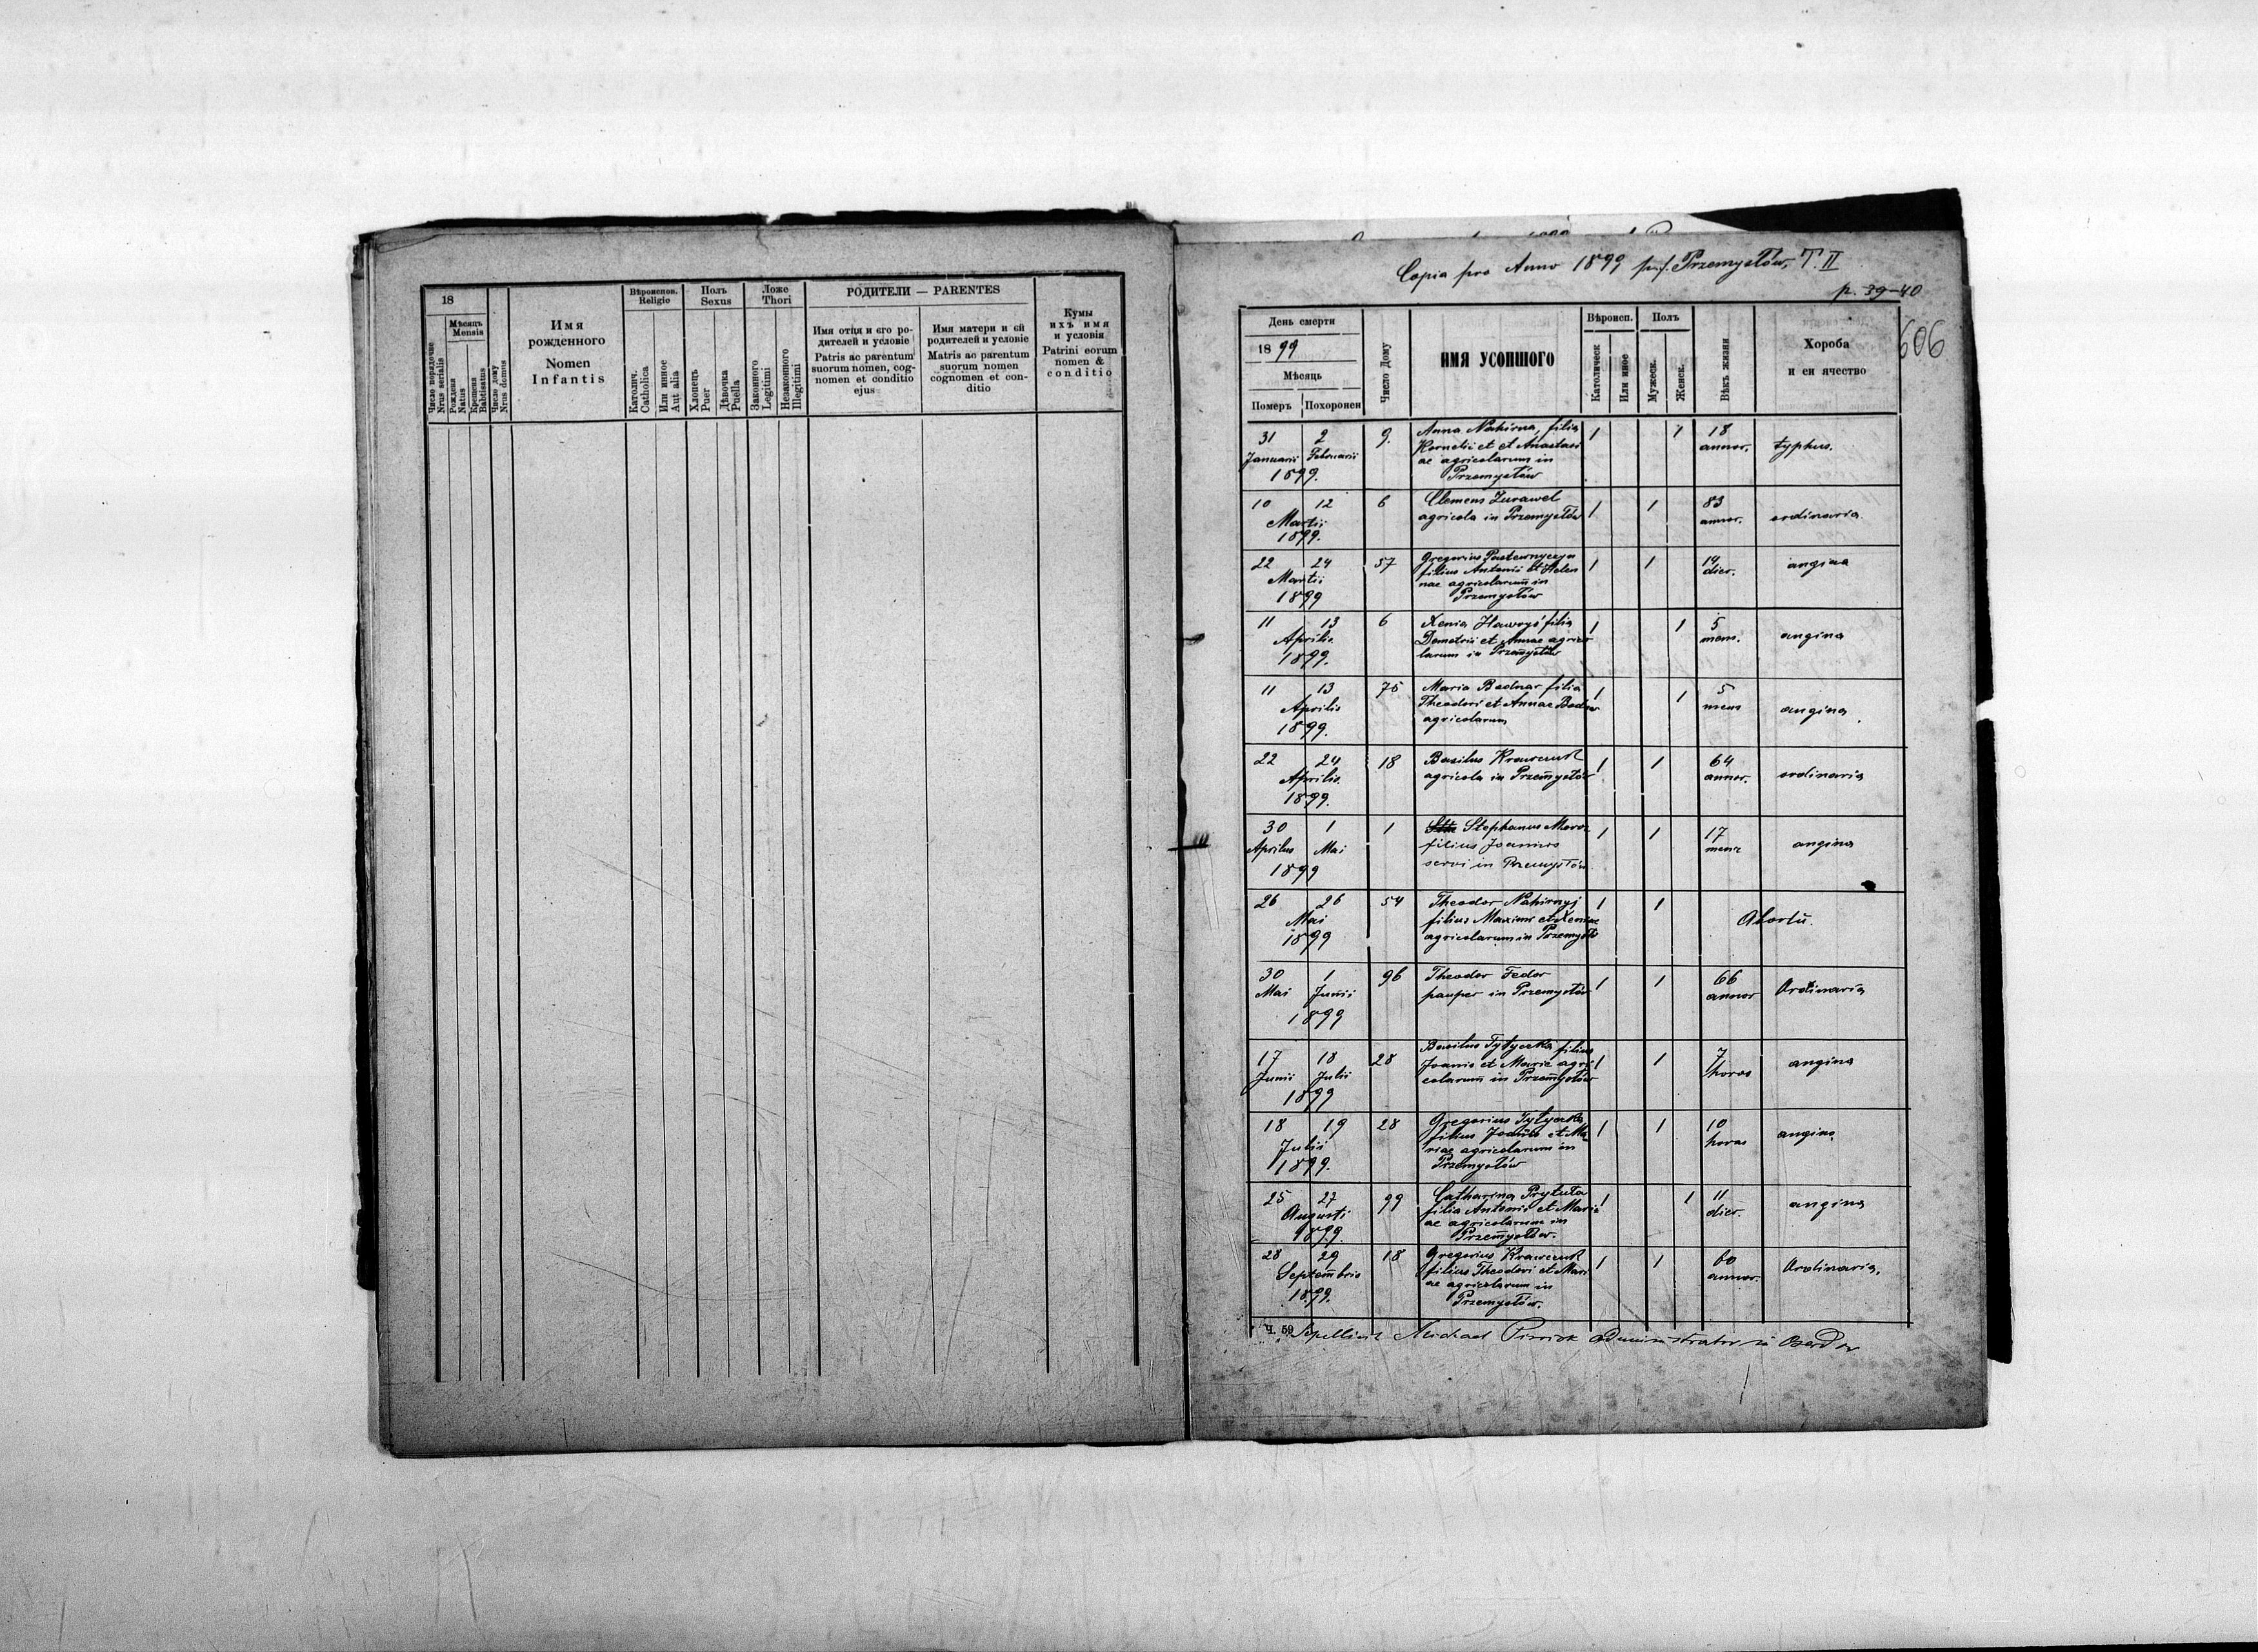 18
Мѣсяцъ
Mensis
Число порядочне
Nrus serialis
Рождення
Natus
Крещена
Babtisatus
Число дому
Nrus domus
Имя
рожденного
Nomen
Infantis
Вѣроиспов.
Religio
Католич.
Catholica
Или инное
Aut alia
Полъ
Sexus
Хлопець
Puer
Дѣвочка
Puella
Ложе
Thori
Законного
Legitimi
Незаконного
Illegitimi
РОДИТЕЛИ — PARENTES
Имя отця и єго ро-
дителей и условіє
Patris ac parentum
suorum nomen, cog-
nomen et conditio
ejus
Имя матери и єй
родителей и условіє
Matris ac parentum
suorum nomen
cognomen et con-
ditio
Кумы
ихъ имя
и условія
Patrini eorum
nomen &
conditio
Copia pro Anno 1899 Przemysłów, T. II
p. 39-40
606
День смерти
1899
Мѣсяць
Померъ Похоронен
Число Дому
ИМЯ УСОПШОГО
Вѣроисп.
Католическ
Или иное
Полъ
Мужеск.
Женск.
Вѣкъ жизни
Хороба
и єи ячество
31 2 9. Anna Nahirna, filia 1 1 18 typhus.
Januarii Februarii Kornelii et et Anastasi annor.
ae agricolarum in
1899. Przemysłów
10 12 6 Clemens Żurawel 1 1 83 ordinaria
Martii agricola in Przemysłów annor.
1899.
22 24 57 Gregorius 1 1 14 angina
Martii filius Antonii et Helen dier.
nae agricolarum in
1899 Przemysłów
11 13 6 Xenia filia 1 1 5 angina
Aprilis Demetrii et Annae agrico mens.
1899. larum in Przemysłów
11 13 75 Maria Bednar filia 1 1 5 angina
Aprilis Theodori et Annae Bednar mens
1899. agricolarum
22 24 18 Basilus Krawczuk 1 1 64 ordinaria
Aprilis agricola in Przemysłów annor.
1899.
30 1 1 Stephanus Moroz 1 1 17 angina
Aprilus Mai filius Joannis mens
1899 servi in Przemysłów
26 26 54 Theodor Nahirnyj 1 1 Abortu.
Mai filius Maximi et Xeniae
1899 agricolarum in Przemysłó
30 1 96 Theodor Fedor 1 1 66 Ordinaria
Mai Junii pauper in Przemysłów annor
1899
17 18 28 Basilus Tytyczka filius 1 1 7 angina
Junii Julii Joanis et Marie agri horas
1899 colarum in Przemysłów
18 19 28 Gregorius Tytyczka 1 1 10 angina
Julii filius Joanis et Ma horas
riae agricolarum in
1899. Przemysłów
25 27 99 Catharina Prytuła 1 1 11 angina
Augusti filia Antonii et Mari dier.
ae agricolarum in
1899. Przemysłów.
28 29 18 Gregorius Krawczuk 1 1 60 Ordinaria.
Septembris filius Theodori et Mari annor.
ae agricolarum in
1899. Przemysłów.
Ч. 59 Michael administrator in